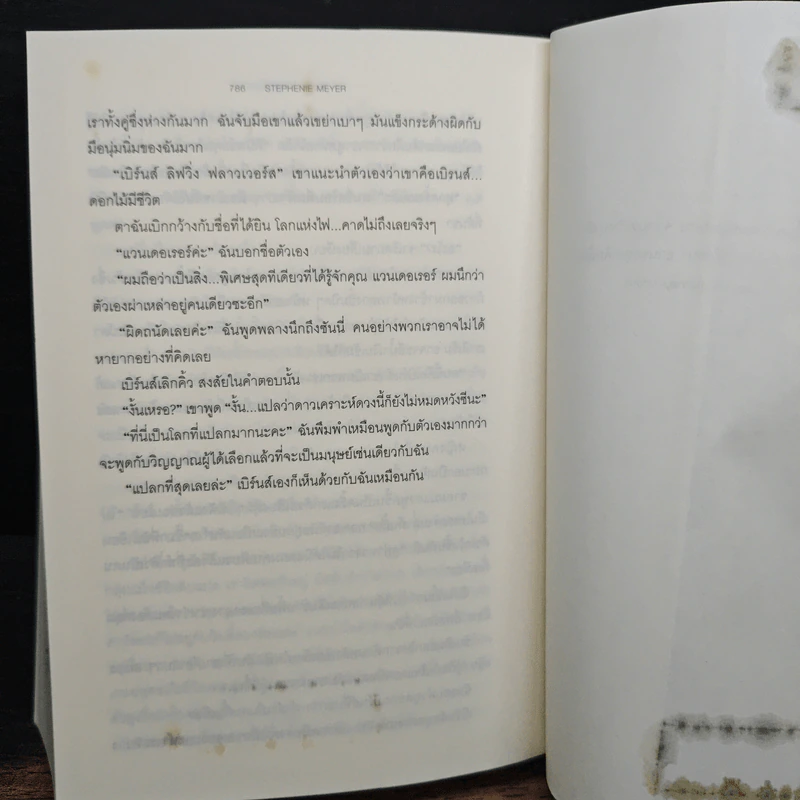 786 STEPHENIE MEYER
เราทั้งคู่ซึ่งห่างกันมาก ฉันจับมือเขาแล้วเขย่าเบาๆ มันแข็งกระด้างผิดกับ
มือนุ่มนิ่มของฉันมาก
“เบิร์นส์ ลิฟวิ่ง ฟลาวเวอร์ส” เขาแนะนำตัวเองว่าเขาคือเบิรนส์...
ดอกไม้มีชีวิต
ตาฉันเบิกกว้างกับชื่อที่ได้ยิน โลกแห่งไฟ...คาดไม่ถึงเลยจริงๆ
“แวนเดอเรอร์ค่ะ” ฉันบอกชื่อตัวเอง
“ผมถือว่าเป็นสิ่ง...พิเศษสุดทีเดียวที่ได้รู้จักคุณ แวนเดอเรอร์ ผมนึกว่า
ตัวเองผ่าเหล่าอยู่คนเดียวซะอีก”
“ผิดถนัดเลยค่ะ” ฉันพูดพลางนึกถึงซันนี่ คนอย่างพวกเราอาจไม่ได้
หายากอย่างที่คิดเลย
เบิร์นส์เลิกคิ้ว สงสัยในคำตอบนั้น
“งั้นเหรอ?” เขาพูด “งั้น...แปลว่าดาวเคราะห์ดวงนี้ก็ยังไม่หมดหวังซีนะ”
“ที่นี่เป็นโลกที่แปลกมากนะคะ” ฉันพึมพำเหมือนพูดกับตัวเองมากกว่า
จะพูดกับวิญญาณผู้ได้เลือกแล้วที่จะเป็นมนุษย์เช่นเดียวกับฉัน
“แปลกที่สุดเลยล่ะ” เบิร์นส์เองก็เห็นด้วยกับฉันเหมือนกัน